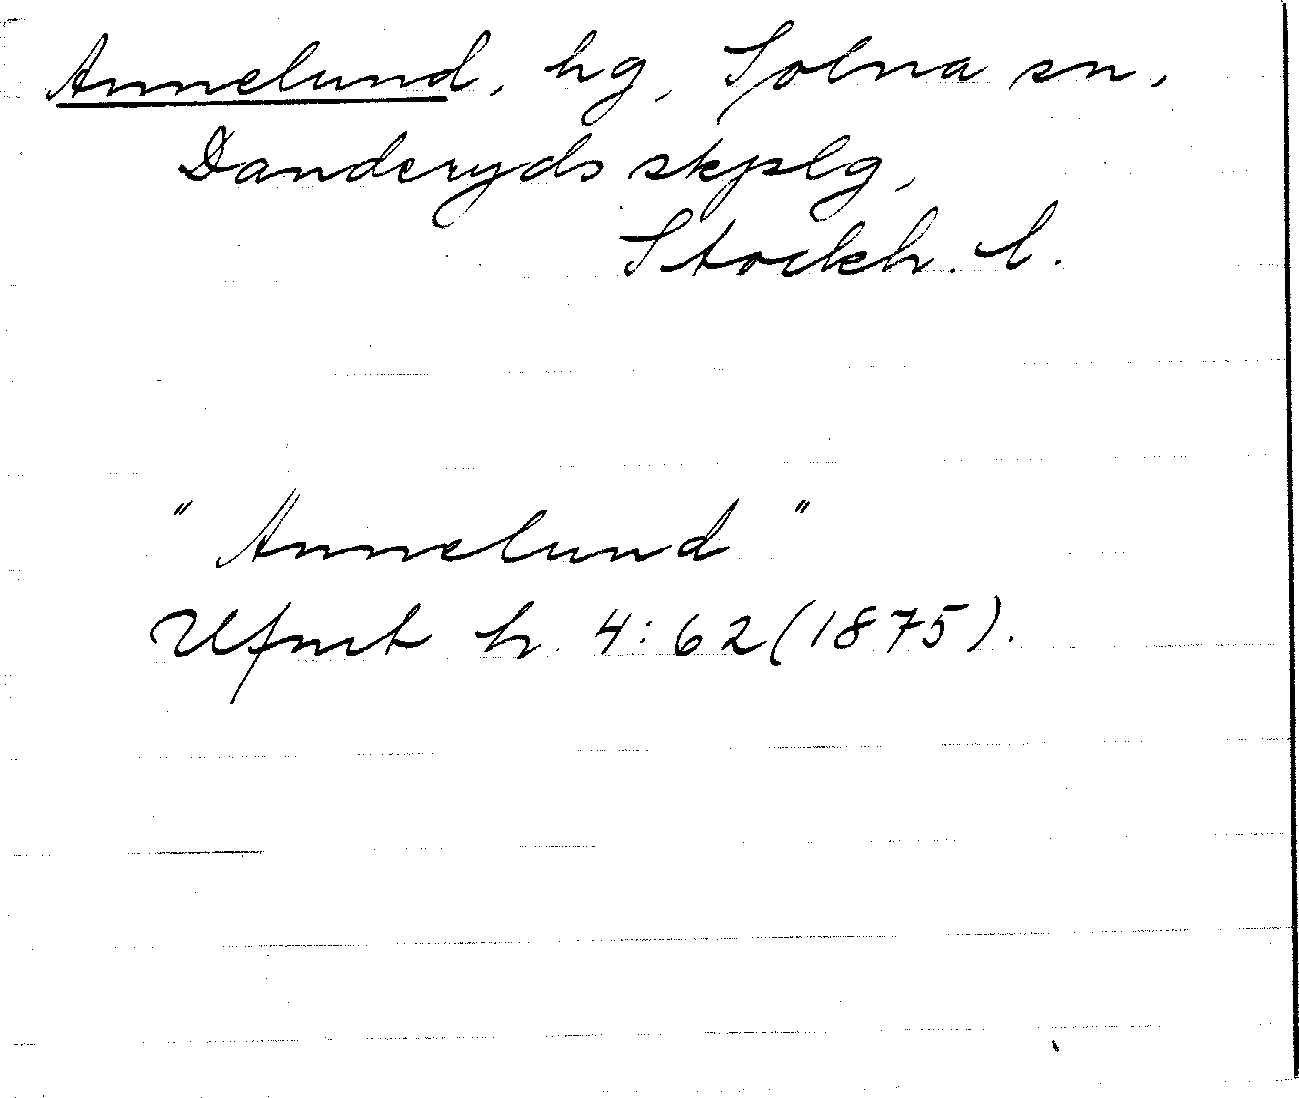 Annelund, hg, Solna sn,
Danderyds skplg,
Stockh. l.
"Annelund"
Ufmt h. 4:62 (1875).